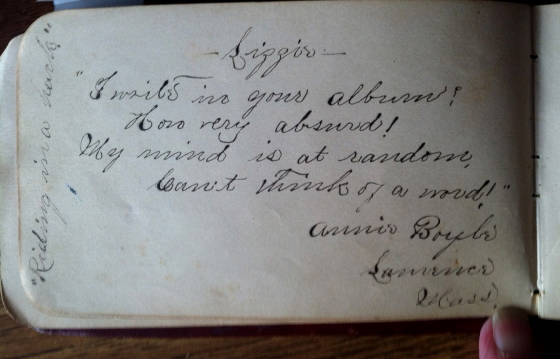 — Lizzie —
"I write in your album!
How very absurd!
My mind is at random,
Can't think of a word!"
Annie Boyle
Lawrence
Mass.
"Riding in a hack"